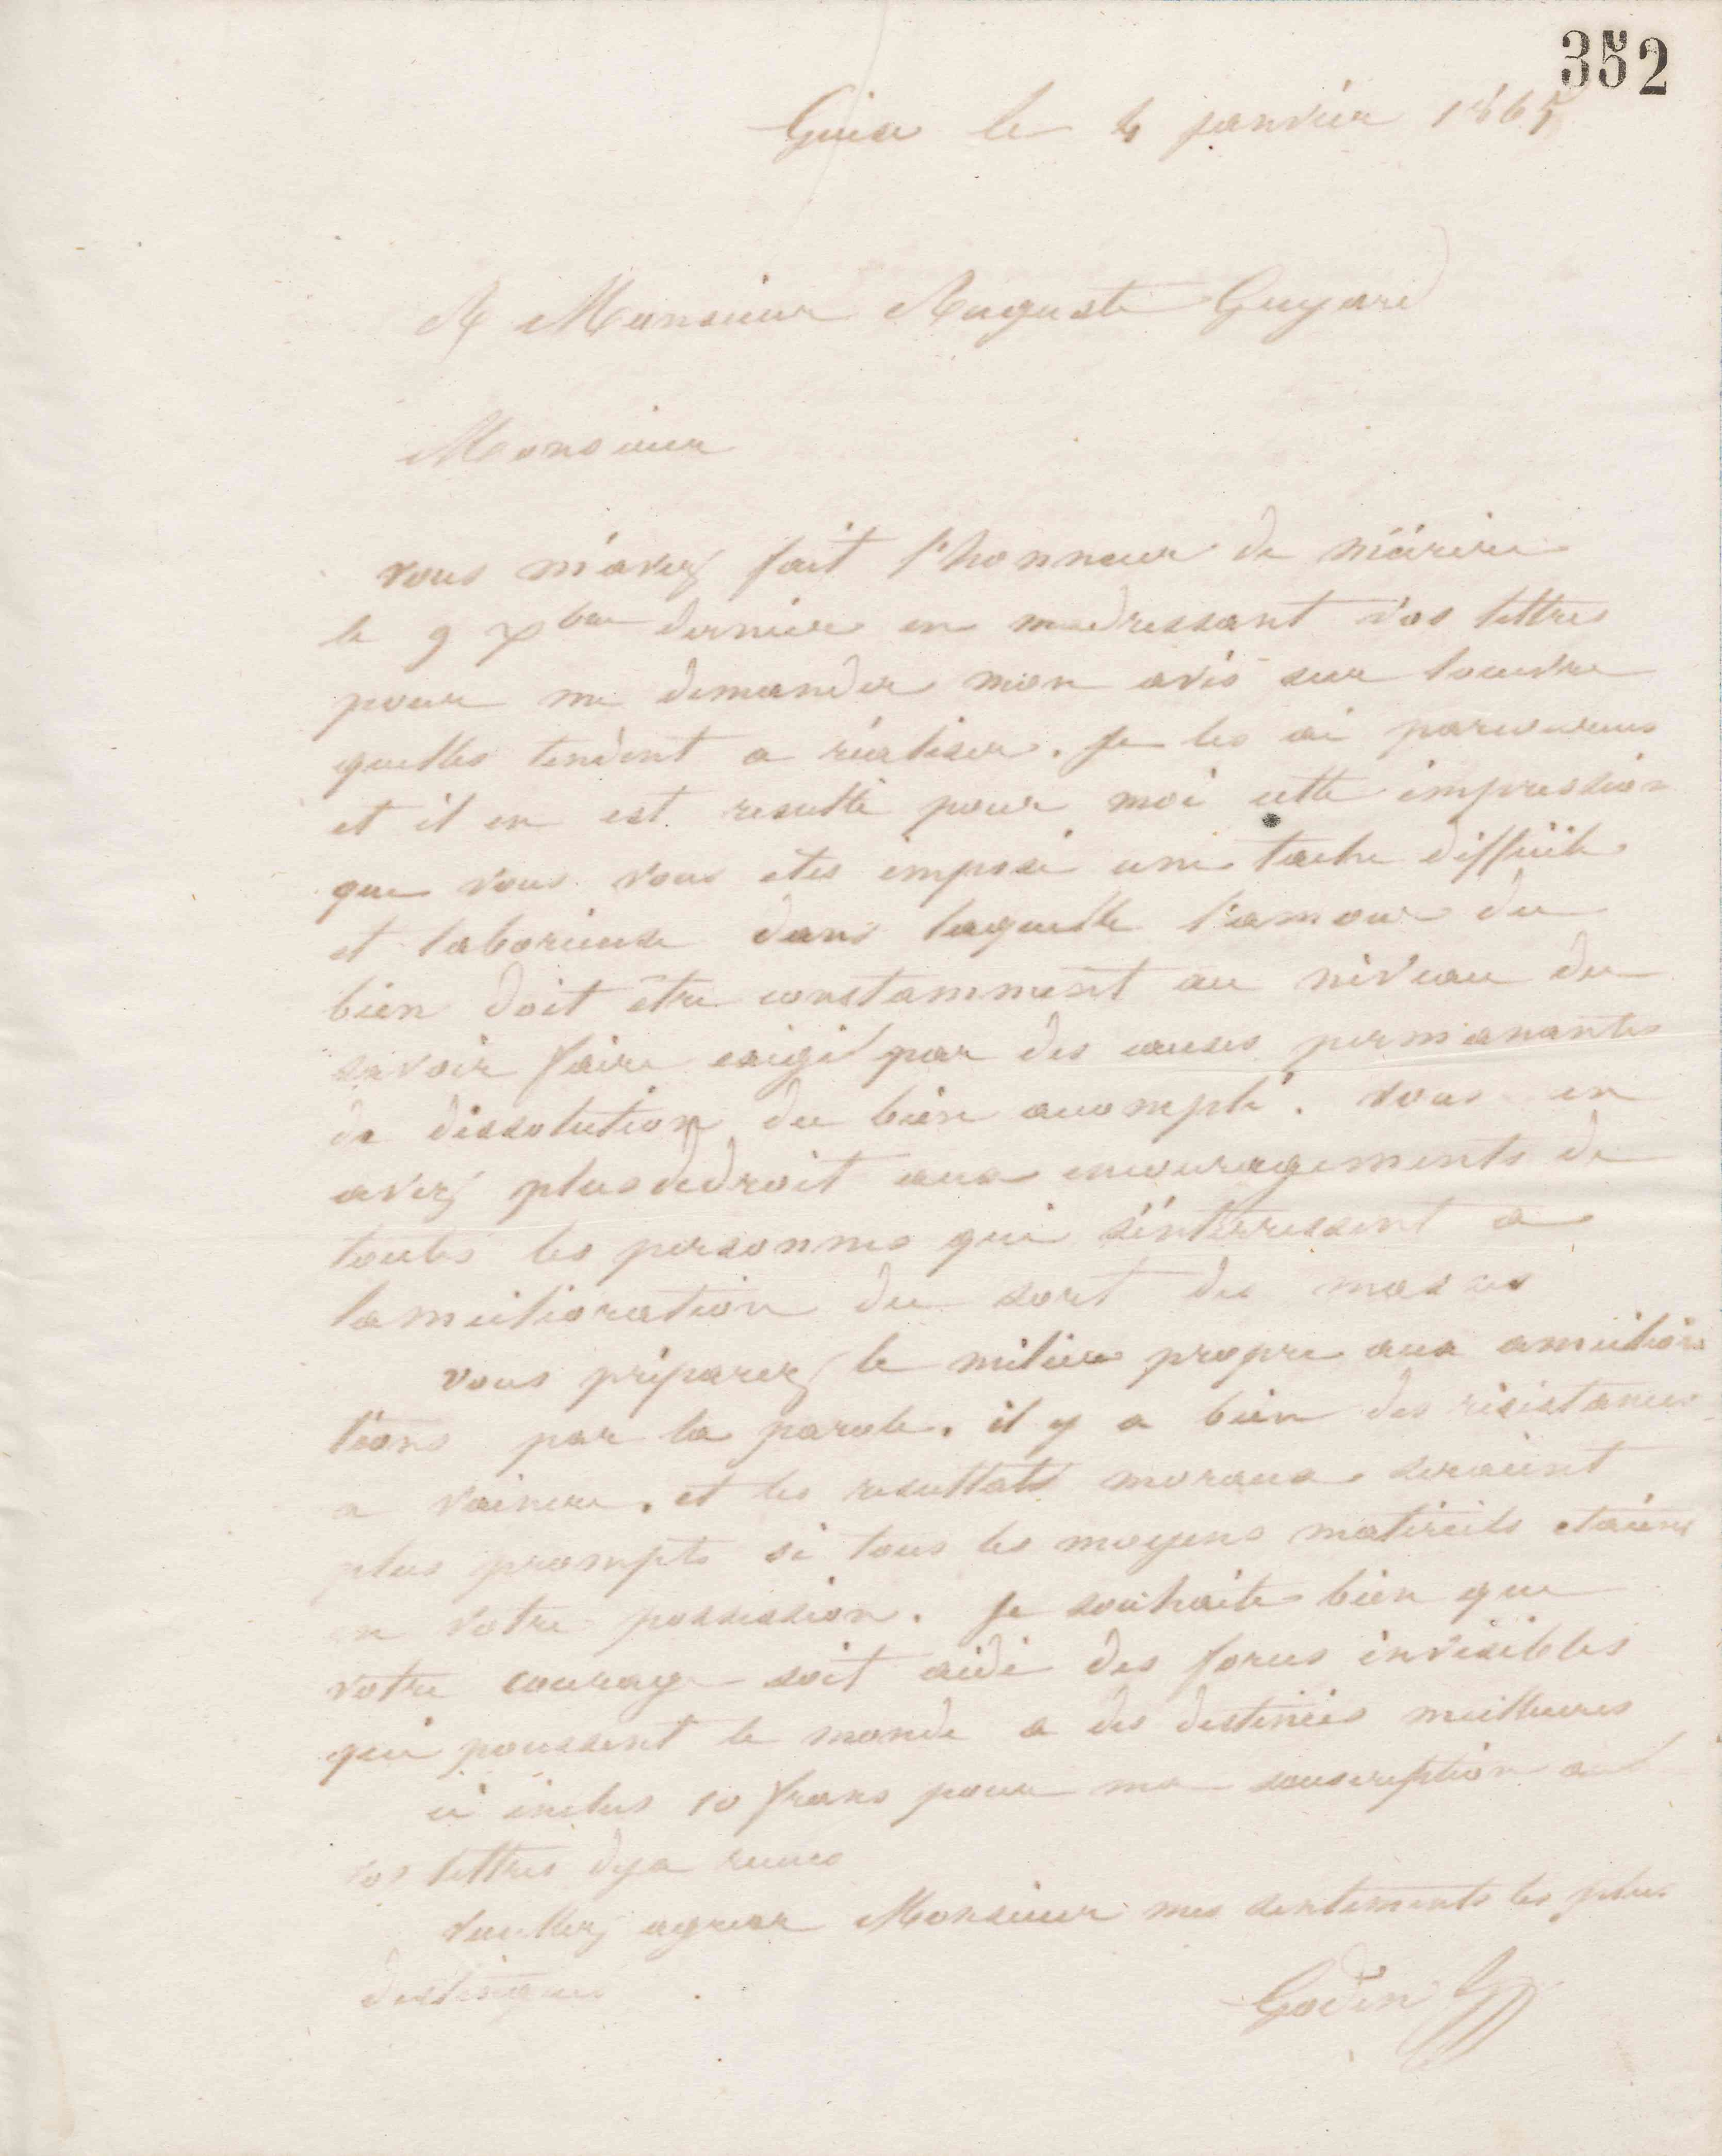 352
Guise le 4 janvier 1865
A Monsieur Auguste Guyard
Monsieur
vous m'avez fait l'honneur de m'écrire
le 9 Xbre dernier en madressant vos lettres
pour me demander mon avis sur loeuvre
quelles tendent a réaliser. Je les ai parcourues
et il en est resulté pour moi cette impression
que vous vous etes imposé une tache difficile
et laborieuse dans laquelle l'amour du
bien doit être constamment au niveau du
savoir faire exigé par des causes permanantes
de dissolution du bien accompli. vous en
avez plus de droit aux encouragements de
toutes les personnes qui s'intérressent a
lameilioration du sort des masses
vous préparez le milieu propre aux ameiliora
tions par la parole. il y a bien des résistances
a vaincre. et les resultats moraux seraient
plus prompts si tous les moyens matériels etaient
en votre possession. Je souhaite bien que
votre courage soit aidé des forces invisibles
qui poussent le monde a des destinées meilleures
ci inclus 10 francs pour ma souscription a
vos lettres deja recues
Veuillez agreer Monsieur mes sentiments les plus
distingués
Godin